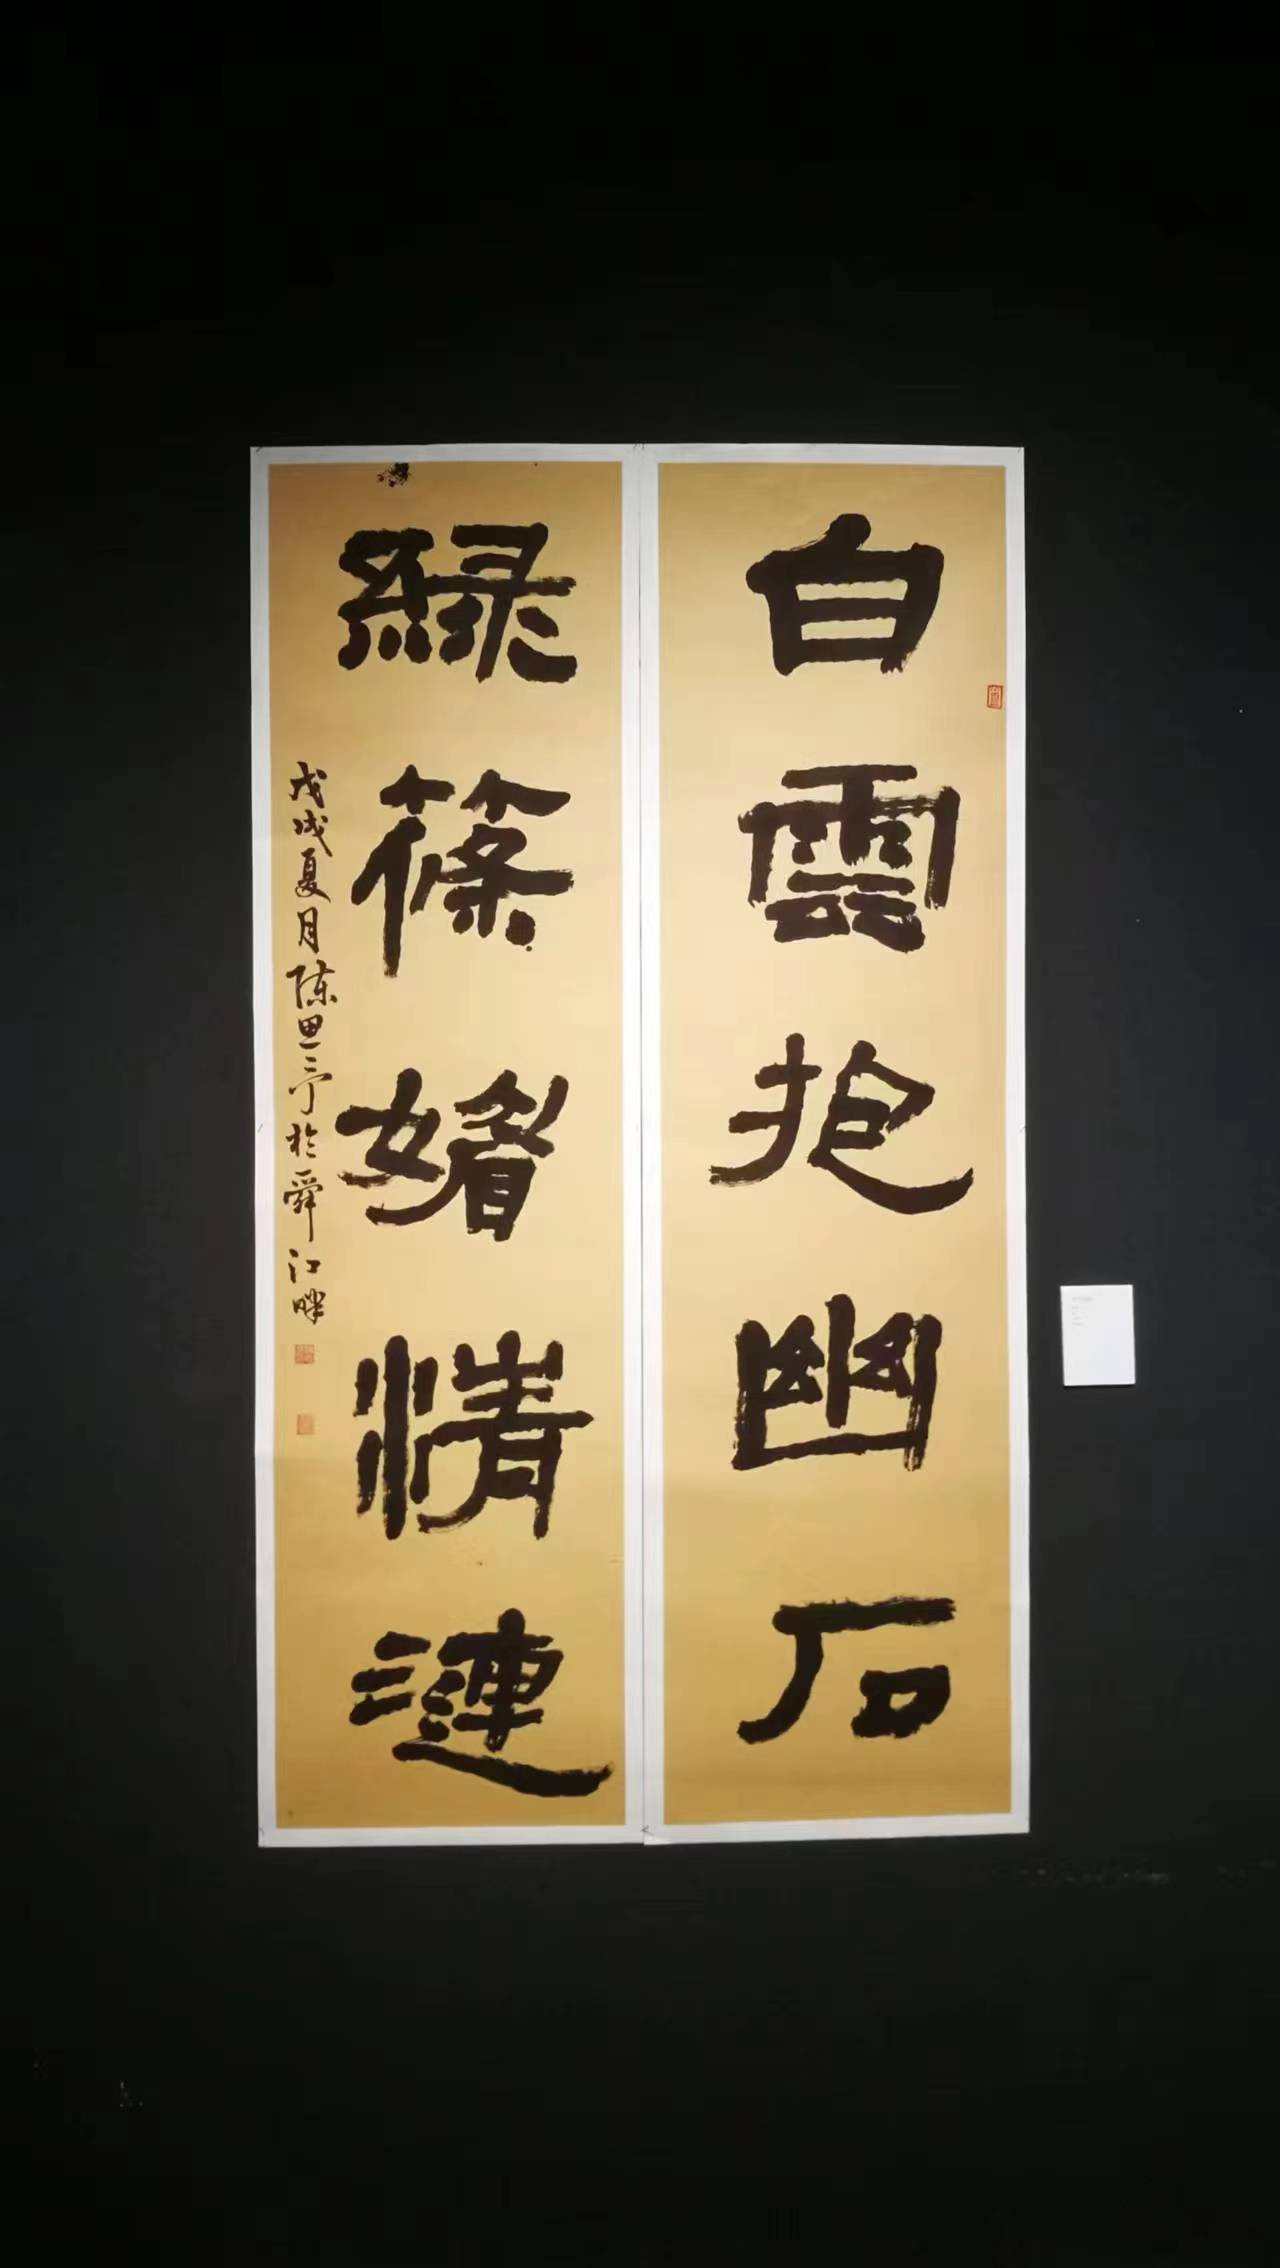 白雲抱幽石
綠篠媚清漣
戊戌夏月陳思亭於舜江畔